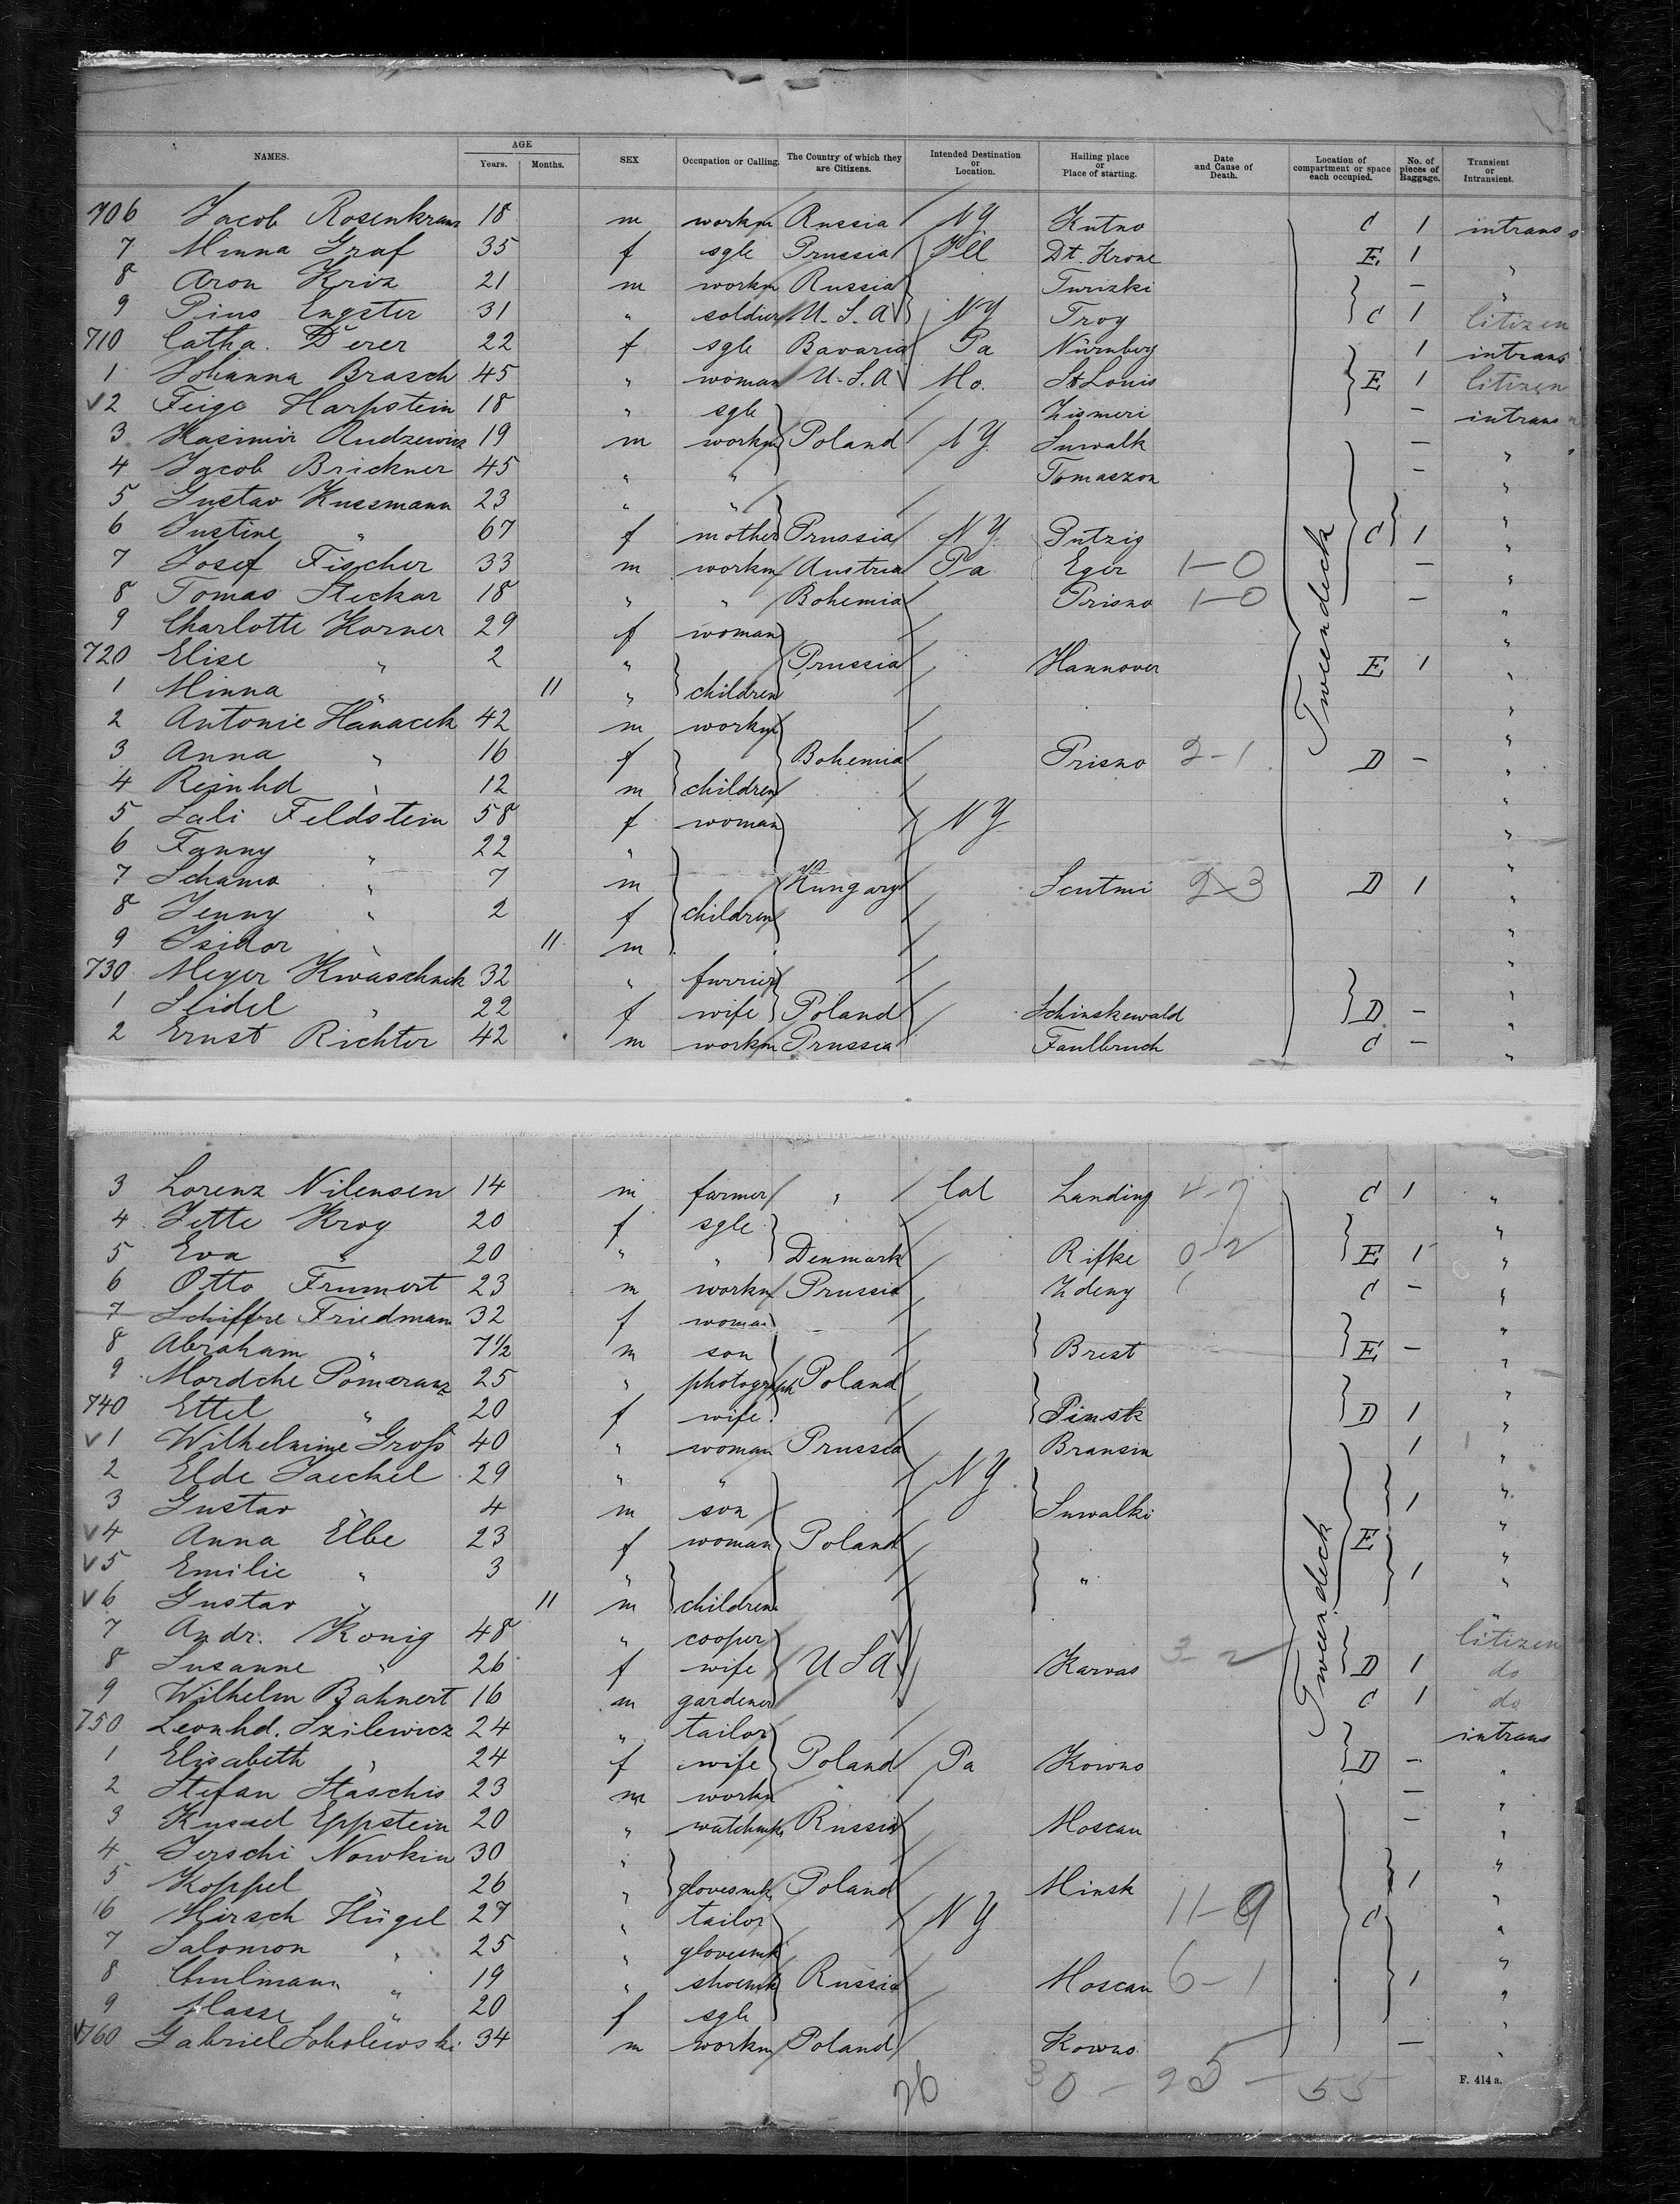 NAMES. AGE Years. Months. SEX Occupation or Calling. The Country of which they are Citizens. Intended Destination or Location. Hailing place or Place of starting. Date and Cause of Death. Location of compartment or space each occupied. No. of pieces of Baggage. Transient or Intransient.
706 Jacob Rosenkranz 18 m workm Russia NY Kutno C 1 intrans
7 Minna Graf 35 f sgle Prussia Ill Dt. Krone E 1 "
8 Aron Kriz 21 m workm Russia Turizki - "
9 Pius Engster 31 " soldier U.S.A NY Troy C 1 Citizen
710 Catha. Derer 22 f sgle Bavaria Pa Nürnberg 1 intrans
1 Johanna Brasch 45 " woman U.S.A Mo. St Louis E 1 Citizen
√2 Feige Harpstein 18 " sgle Zismeri - intrans
3 Kasimir Rudzewicz 19 m workm Poland NY. Suwalk - "
4 Jacob Brickner 45 " " Tomaszon - "
5 Gustav Kussmann 23 " " "
6 Justine " 67 f mother Prussia NY. Putzig C 1 "
7 Josef Fischer 33 m workm Austria Pa Eger 1-0 - "
8 Tomas Steckar 18 " " Bohemia Prisno 1-0 - "
9 Charlotte Korner 29 f woman "
720 Elise " 2 " Prussia Hannover E 1 "
1 Minna " 11 " children "
2 Antonie Hanacek 42 m workm "
3 Anna " 16 f Bohemia Prisno 2-1 D - "
4 Reinhd " 12 m children "
5 Sali Feldstein 58 f woman NY "
6 Fanny " 22 " "
7 Schamo " 7 m Hungary Scutmi 2x3 D 1 "
8 Jenny " 2 f children "
9 Isidor " 11 m "
730 Meyer Kwaschnik 32 " furrier "
1 Seidel " 22 f wife Poland Schinskewald D - "
2 Ernst Richter 42 m workm Prussia Faulbruch C - "
Tweendeck
3 Lorenz Nilensen 14 m farmer " Cal Landing C 1 "
4 Jette Krog 20 f sgle "
5 Eva " 20 " " Denmark Rifke 0-2 E 1 "
6 Otto Frumert 23 m workm Prussia Zdeny C - "
7 Schiffre Friedman 32 f woman "
8 Abraham " 7 1/2 m son Brest E - "
9 Mordche Pomeranz 25 " photograph Poland "
740 Ettel " 20 f wife Pinsk D 1 "
√1 Wilhelmine Groß 40 " woman Prussia Bransin 1 "
2 Elde Jaeckel 29 " " NY "
3 Gustav " 4 m son Suwalki 1 "
√4 Anna Elbe 23 f woman Poland E "
√5 Emilie " 3 " " 1 "
√6 Gustav " 11 m children
7 Andr. König 48 " cooper Citizen
8 Susanne " 26 f wife U S A Karvas 3-2 D 1 do
9 Wilhelm Bahnert 16 m gardener C 1 do
750 Leonhd. Szilewicz 24 " tailor intrans
1 Elisabeth " 24 f wife Poland Pa Kowno D - "
2 Stefan Staschis 23 m workm - "
3 Kussel Eppstein 20 " watchmk. Russia Moscau - "
4 Jerschi Nowkin 30 " "
5 Koppel " 26 " glovesmk. Poland Minsk 1 "
16 Hirsch Hügel 27 " tailor NY 11-9 C "
7 Salomon " 25 " glovesmk "
8 Chulmann " 19 " shoemk Russia Moscau 6-1 1 "
9 Masse " 20 f sgle "
√760 Gabriel Sobolewski 34 m workm Poland Kowno - "
Tweendeck
26 30 - 25 - 55
F. 414 a.